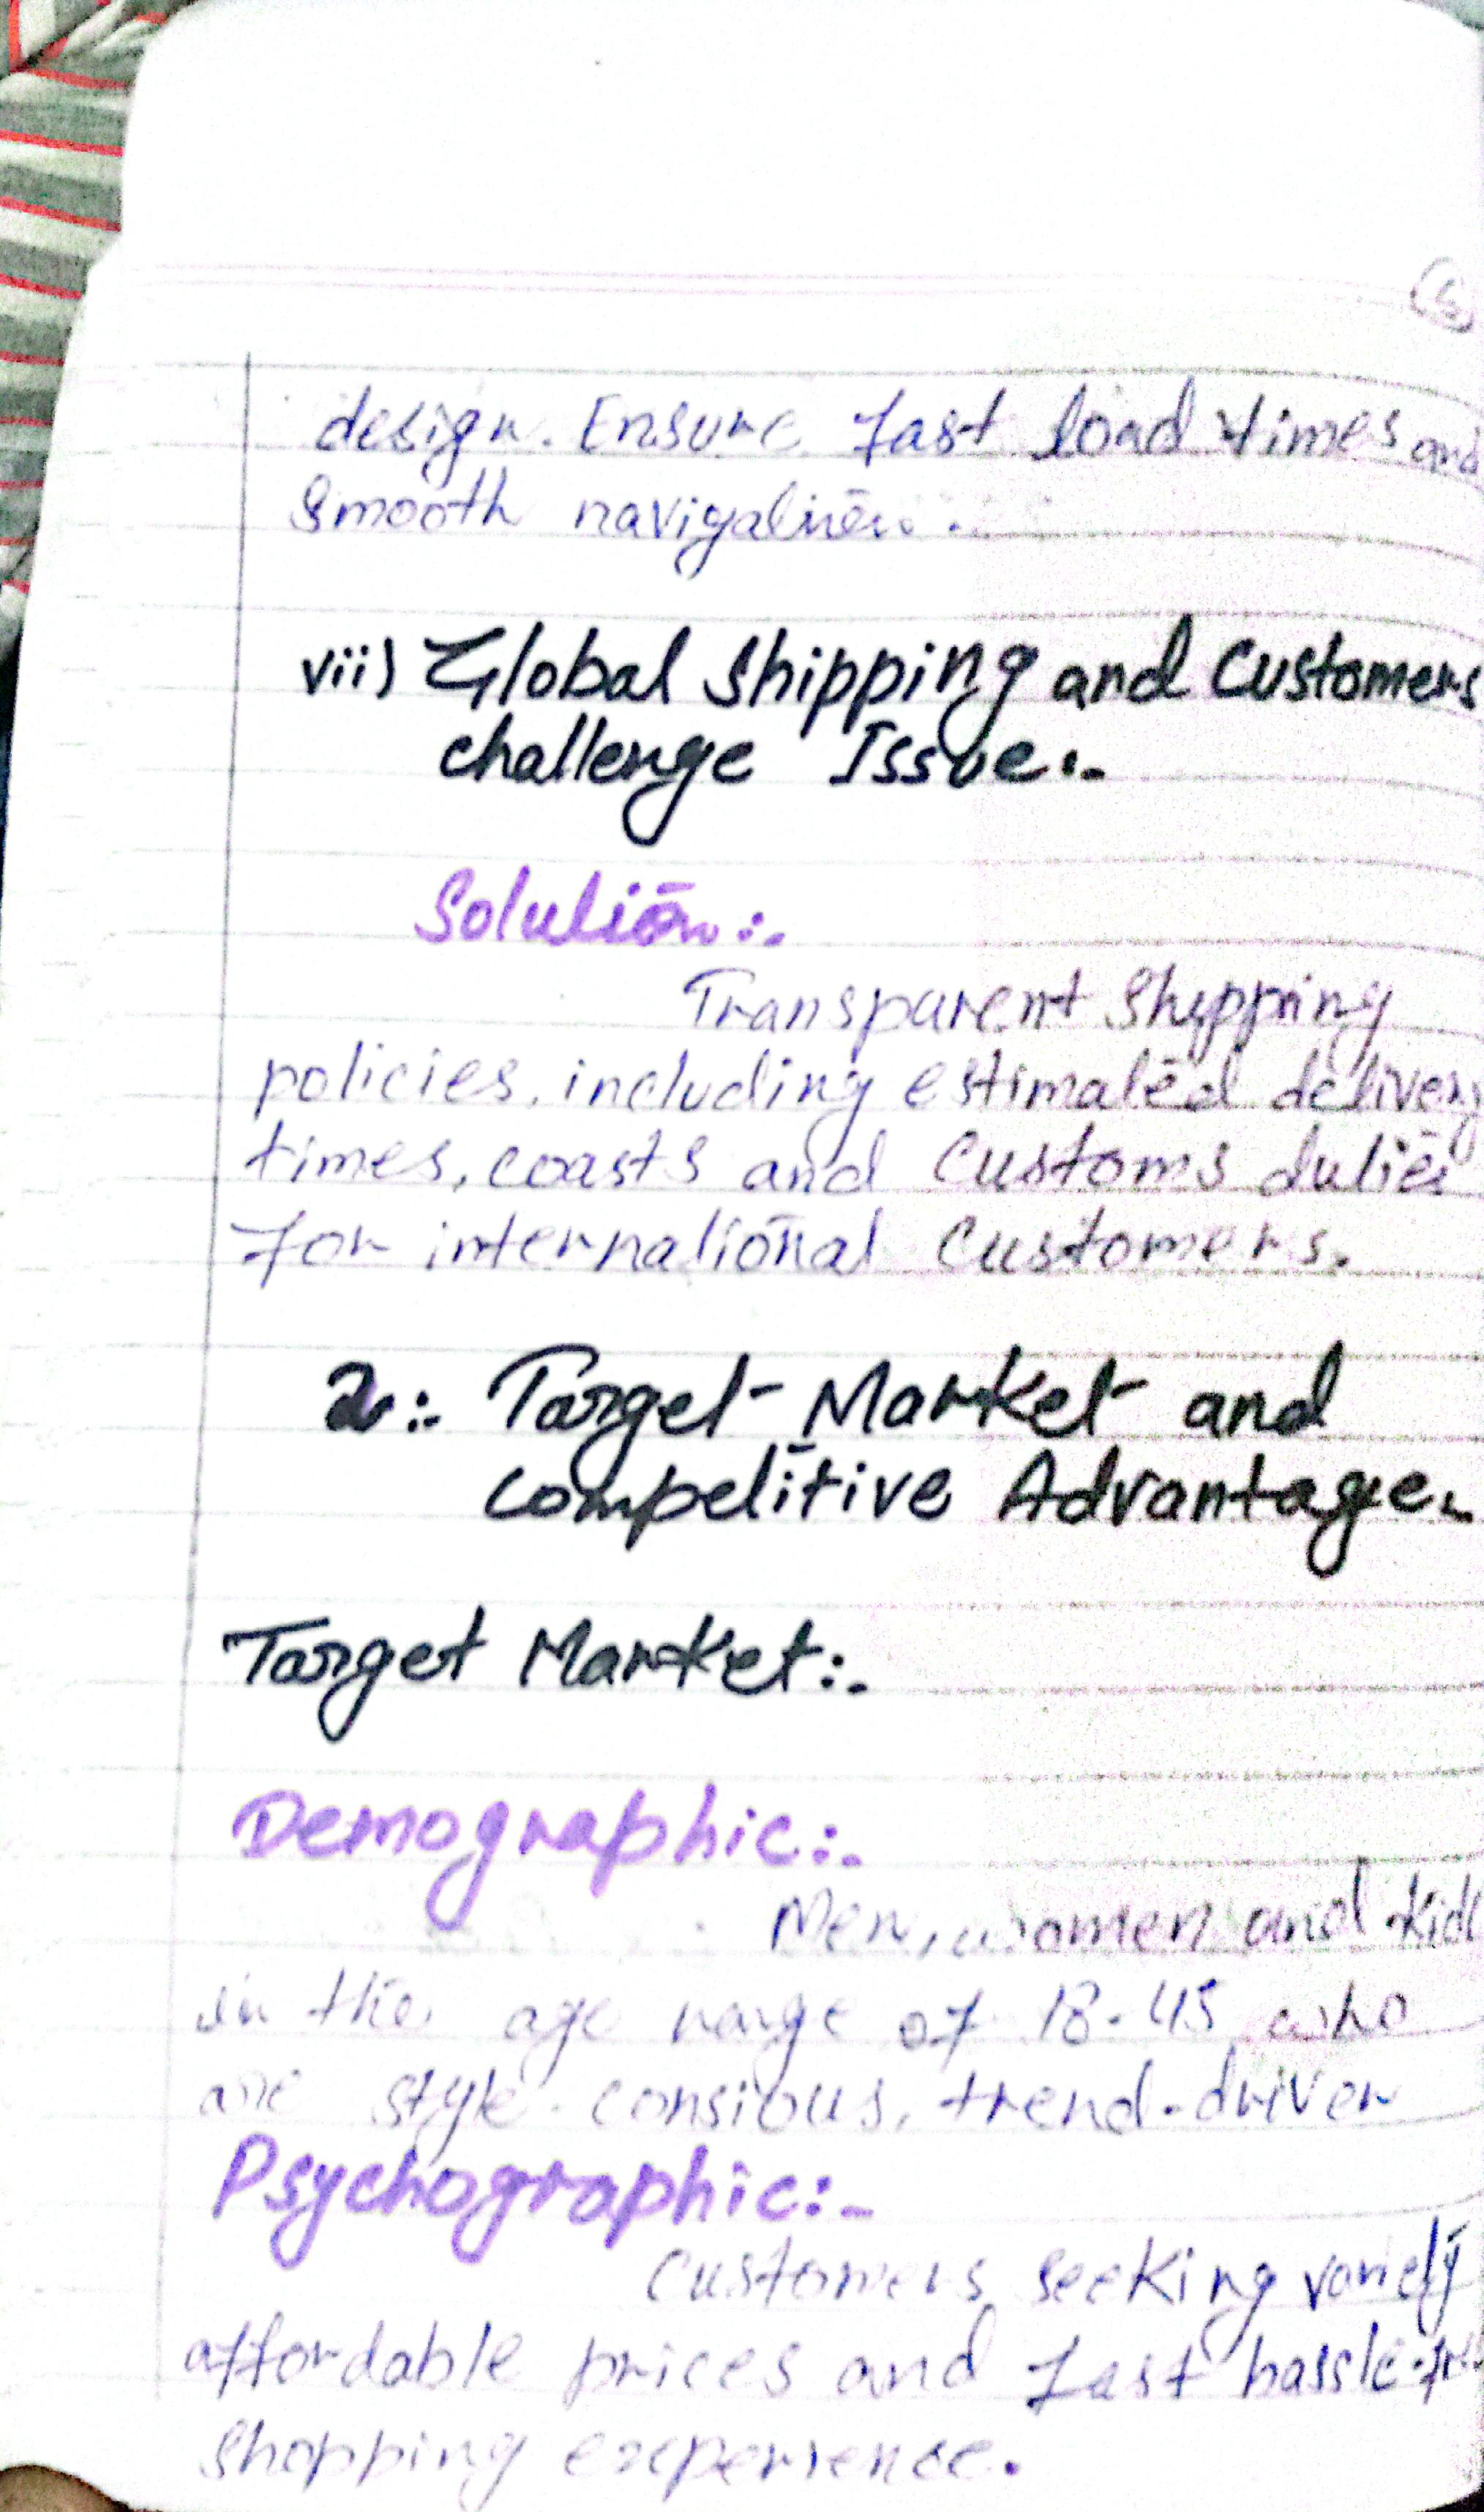 design. Ensure fast load times and
smooth navigation.
vii) Global Shipping and Customers
challenge Issue:-
Solution:-
Transparent Shipping
policies, including estimated delivery
times, coasts and Customs duties
for international Customers.
2:- Target Market and
Competitive Advantage.
Target Market:-
Demographic:-
Men, women and kid
in the age range of 18-45 who
are style-consious, trend-driven
Psychographic:-
Customers seeking variety
affordable prices and fast hassle-
shopping experience.